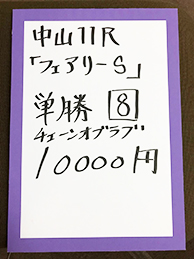 中山11R
「フェアリーS」
単勝 8
チェーンオブラブ
10000円